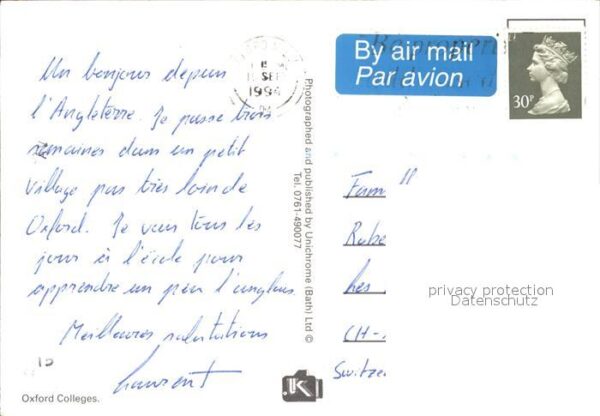 Un bonjour depuis
l'Angleterre. Je passe trois
semaines dans un petit
village pas très loin de
Oxford. Je vais tous les
jours à l'école pour
apprendre un peu l'anglais.
Meilleures salutations
Laurent
Oxford Colleges.
Photographed and published by Unichrome (Bath) Ltd ©
Tel. 0761-490077
K
By air mail
Par avion
30P
Fam
Robe
Les
CH-
Switze
privacy protection
Datenschutz